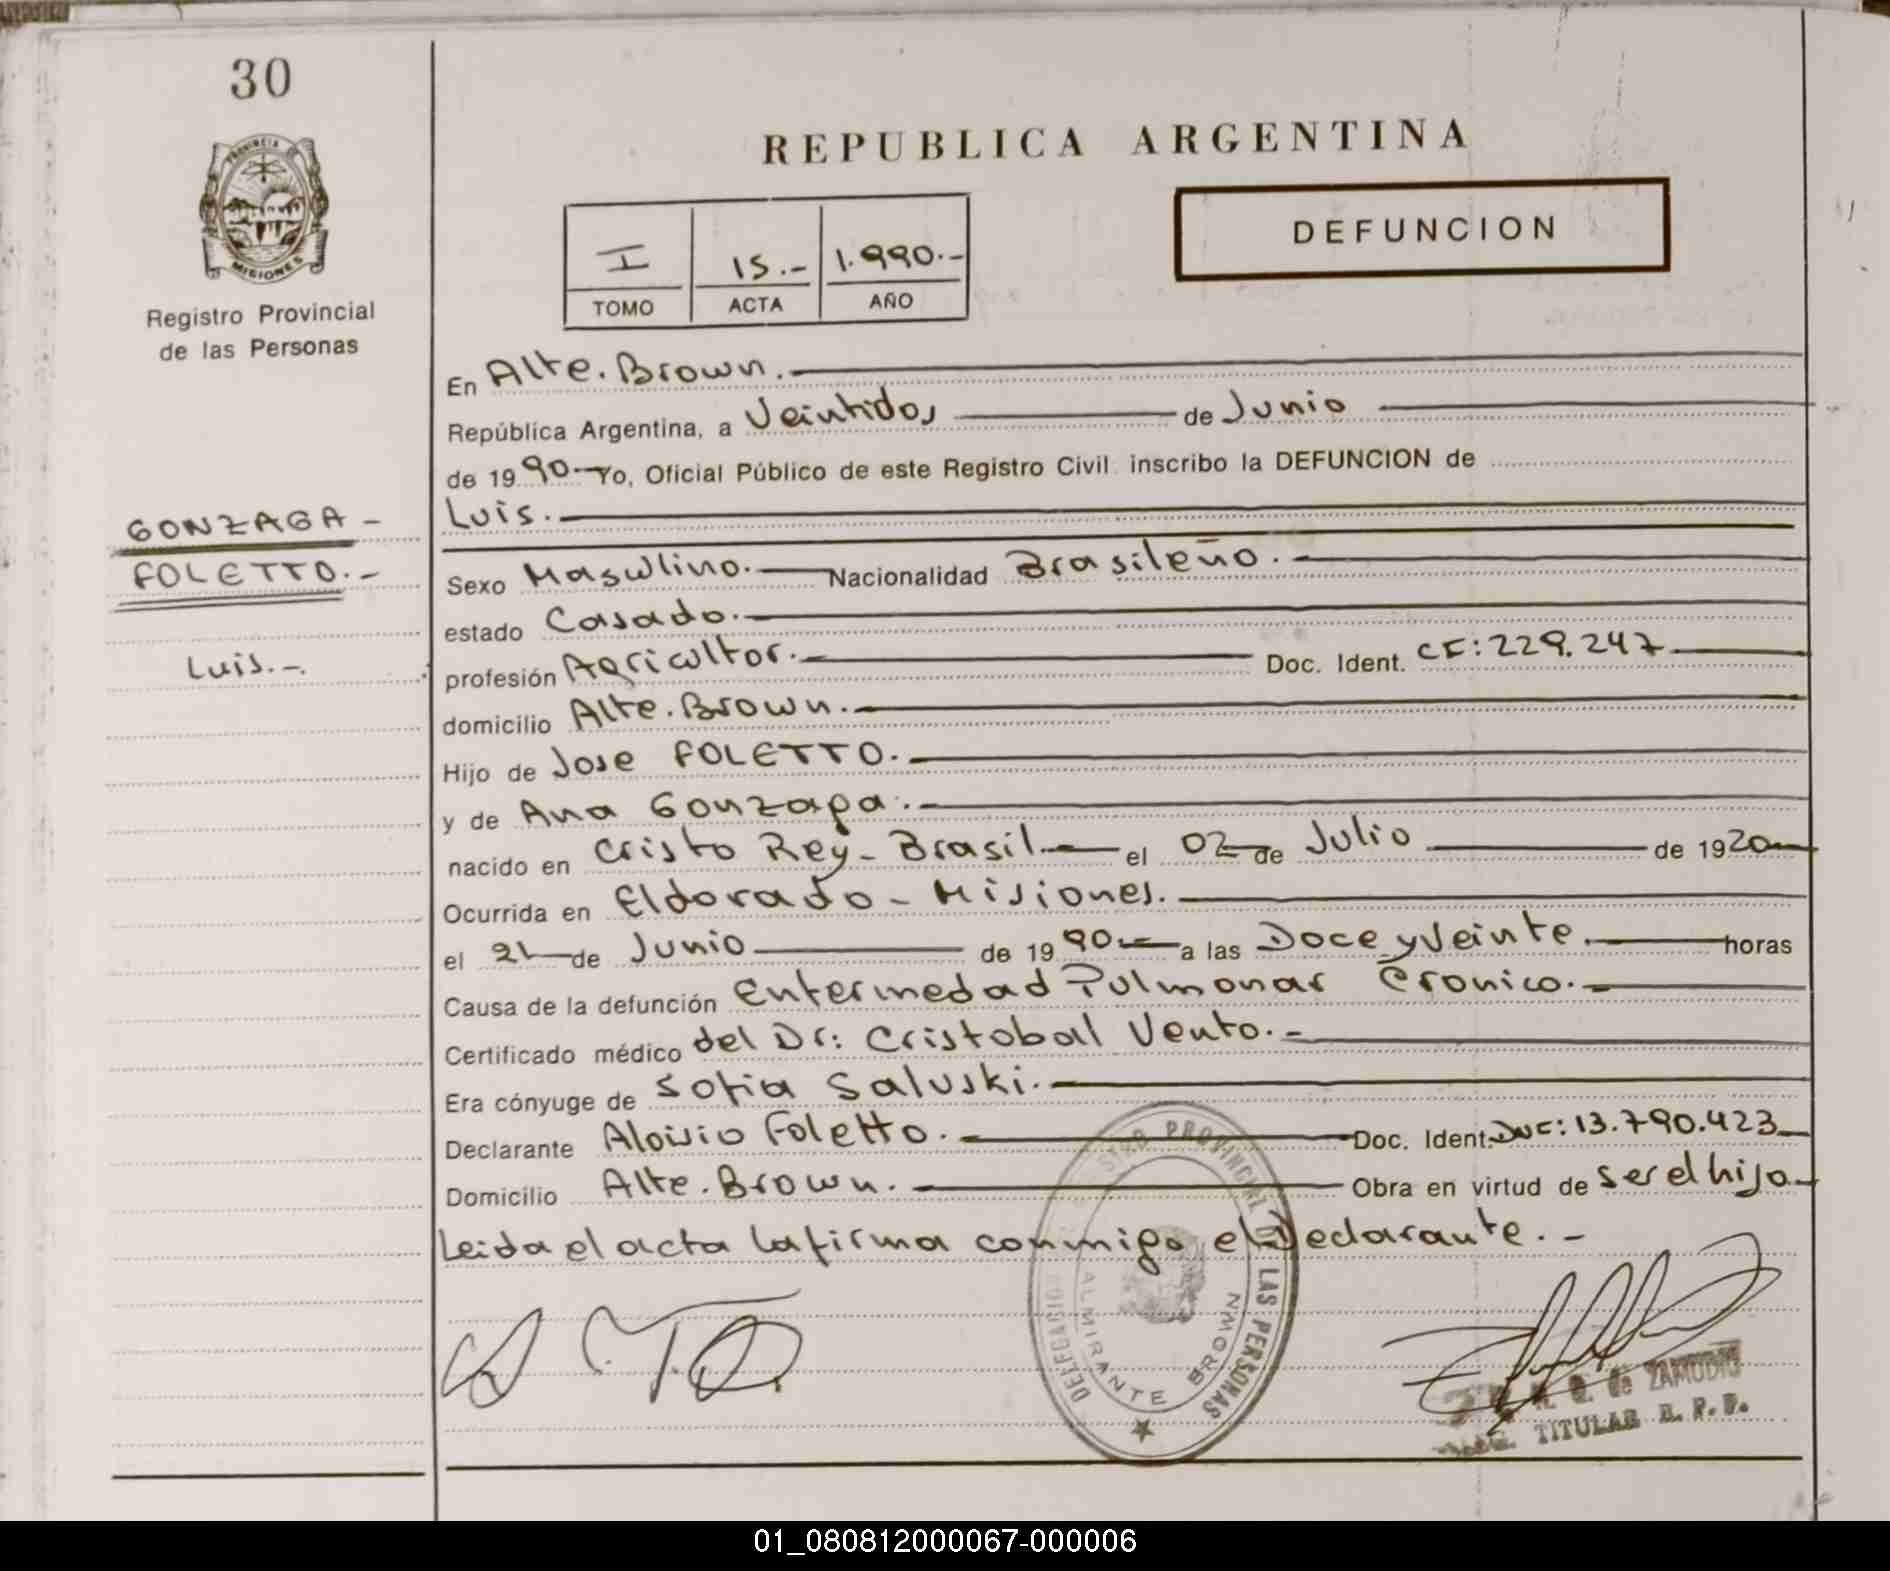 30
PROVINCIA DE
MISIONES
Registro Provincial
de las Personas
GONZAGA -
FOLETTO.-
Luis.-
REPUBLICA ARGENTINA
DEFUNCION
I 15.- 1.990.-
TOMO ACTA AÑO
En Alte. Brown.
República Argentina, a Veintidos de Junio
de 1990.- Yo, Oficial Público de este Registro Civil inscribo la DEFUNCION de
Luis.
Sexo Masculino. Nacionalidad Brasileño.
estado Casado.
profesión Agricultor. Doc. Ident. CF: 229.247
domicilio Alte. Brown.
Hijo de Jose FOLETTO.
y de Ana Gonzaga.
nacido en Cristo Rey - Brasil. el 02 de Julio de 1920
Ocurrida en Eldorado - Misiones.
el 21 de Junio de 1990 a las Doce y Veinte. horas
Causa de la defunción Enfermedad Pulmonar Cronico.
Certificado médico del Dr: Cristobal Vento.-
Era cónyuge de Sofia Saluski.
Declarante Aloisio Foletto. Doc. Ident. DNC: 13.790.423
Domicilio Alte. Brown. Obra en virtud de ser el hijo
Leida el acta la firma conmigo el Declarante.-
PROVINCIAL DE LAS PERSONAS
DELEGACION
ALMIRANTE BROWN
Q. de ZAMUDIO
TITULAR R. P. P.
01_080812000067-000006